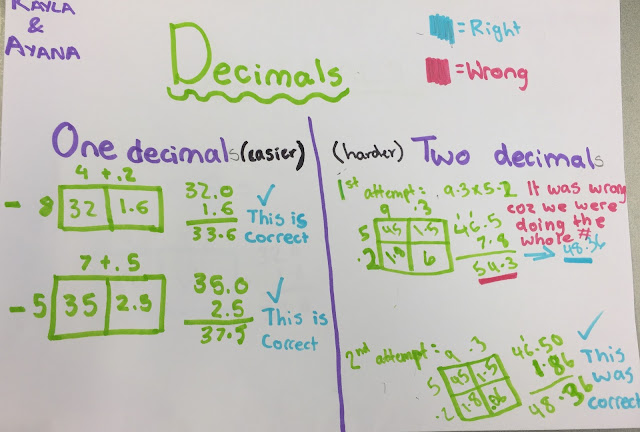 KAYLA
&
AYANA
Decimals
= Right
= Wrong
One decimals (easier)
4 + .2
- 8 32 1.6
32.0
1.6
33.6
✓
This is
correct
7 + .5
- 5 35 2.5
35.0
2.5
37.5
✓
This is
Correct
(harder) Two decimals
1st attempt: 9.3x5.2
9 .3
5 45 1.5
.2 1.8 6
46.5
7.8
54.3
It was wrong
coz we were
doing the
whole #
→ 48.36
2nd attempt: 9 .3
5 45 1.5
.2 1.8 .06
46.50
1.86
48.36
✓
This
was
correct